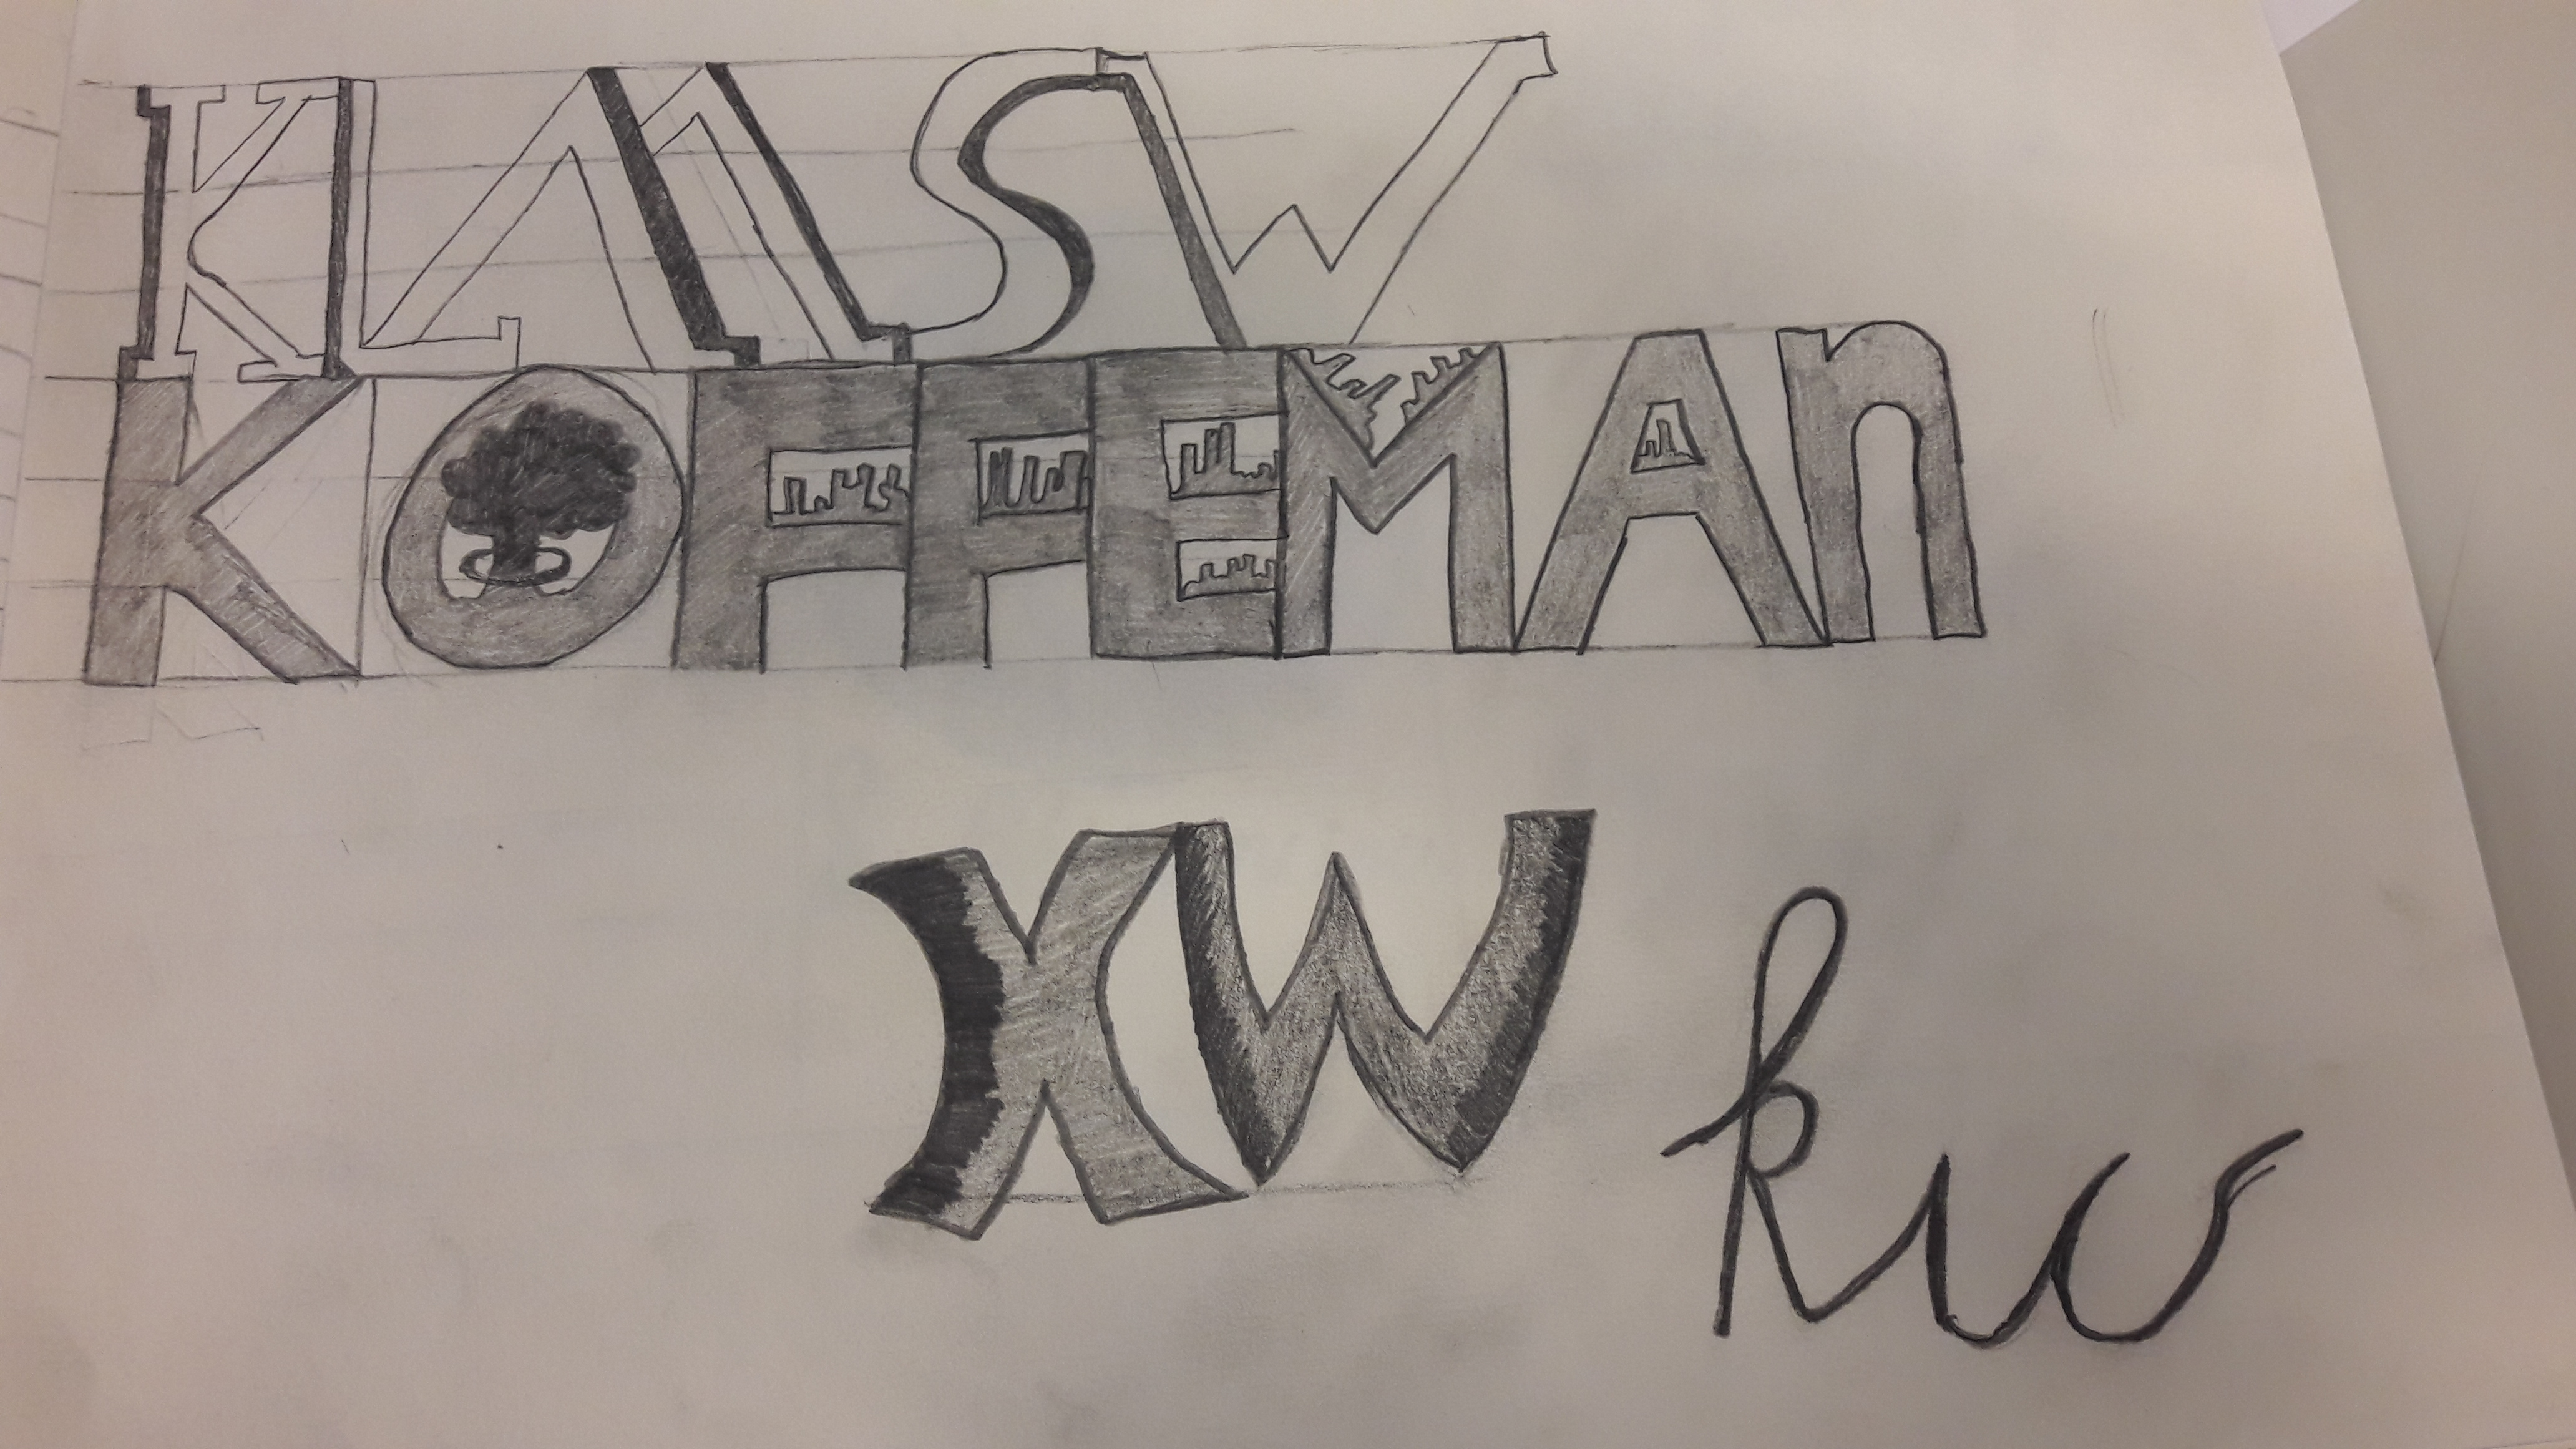 KLAASW
KOFFEMAn
XW
kw